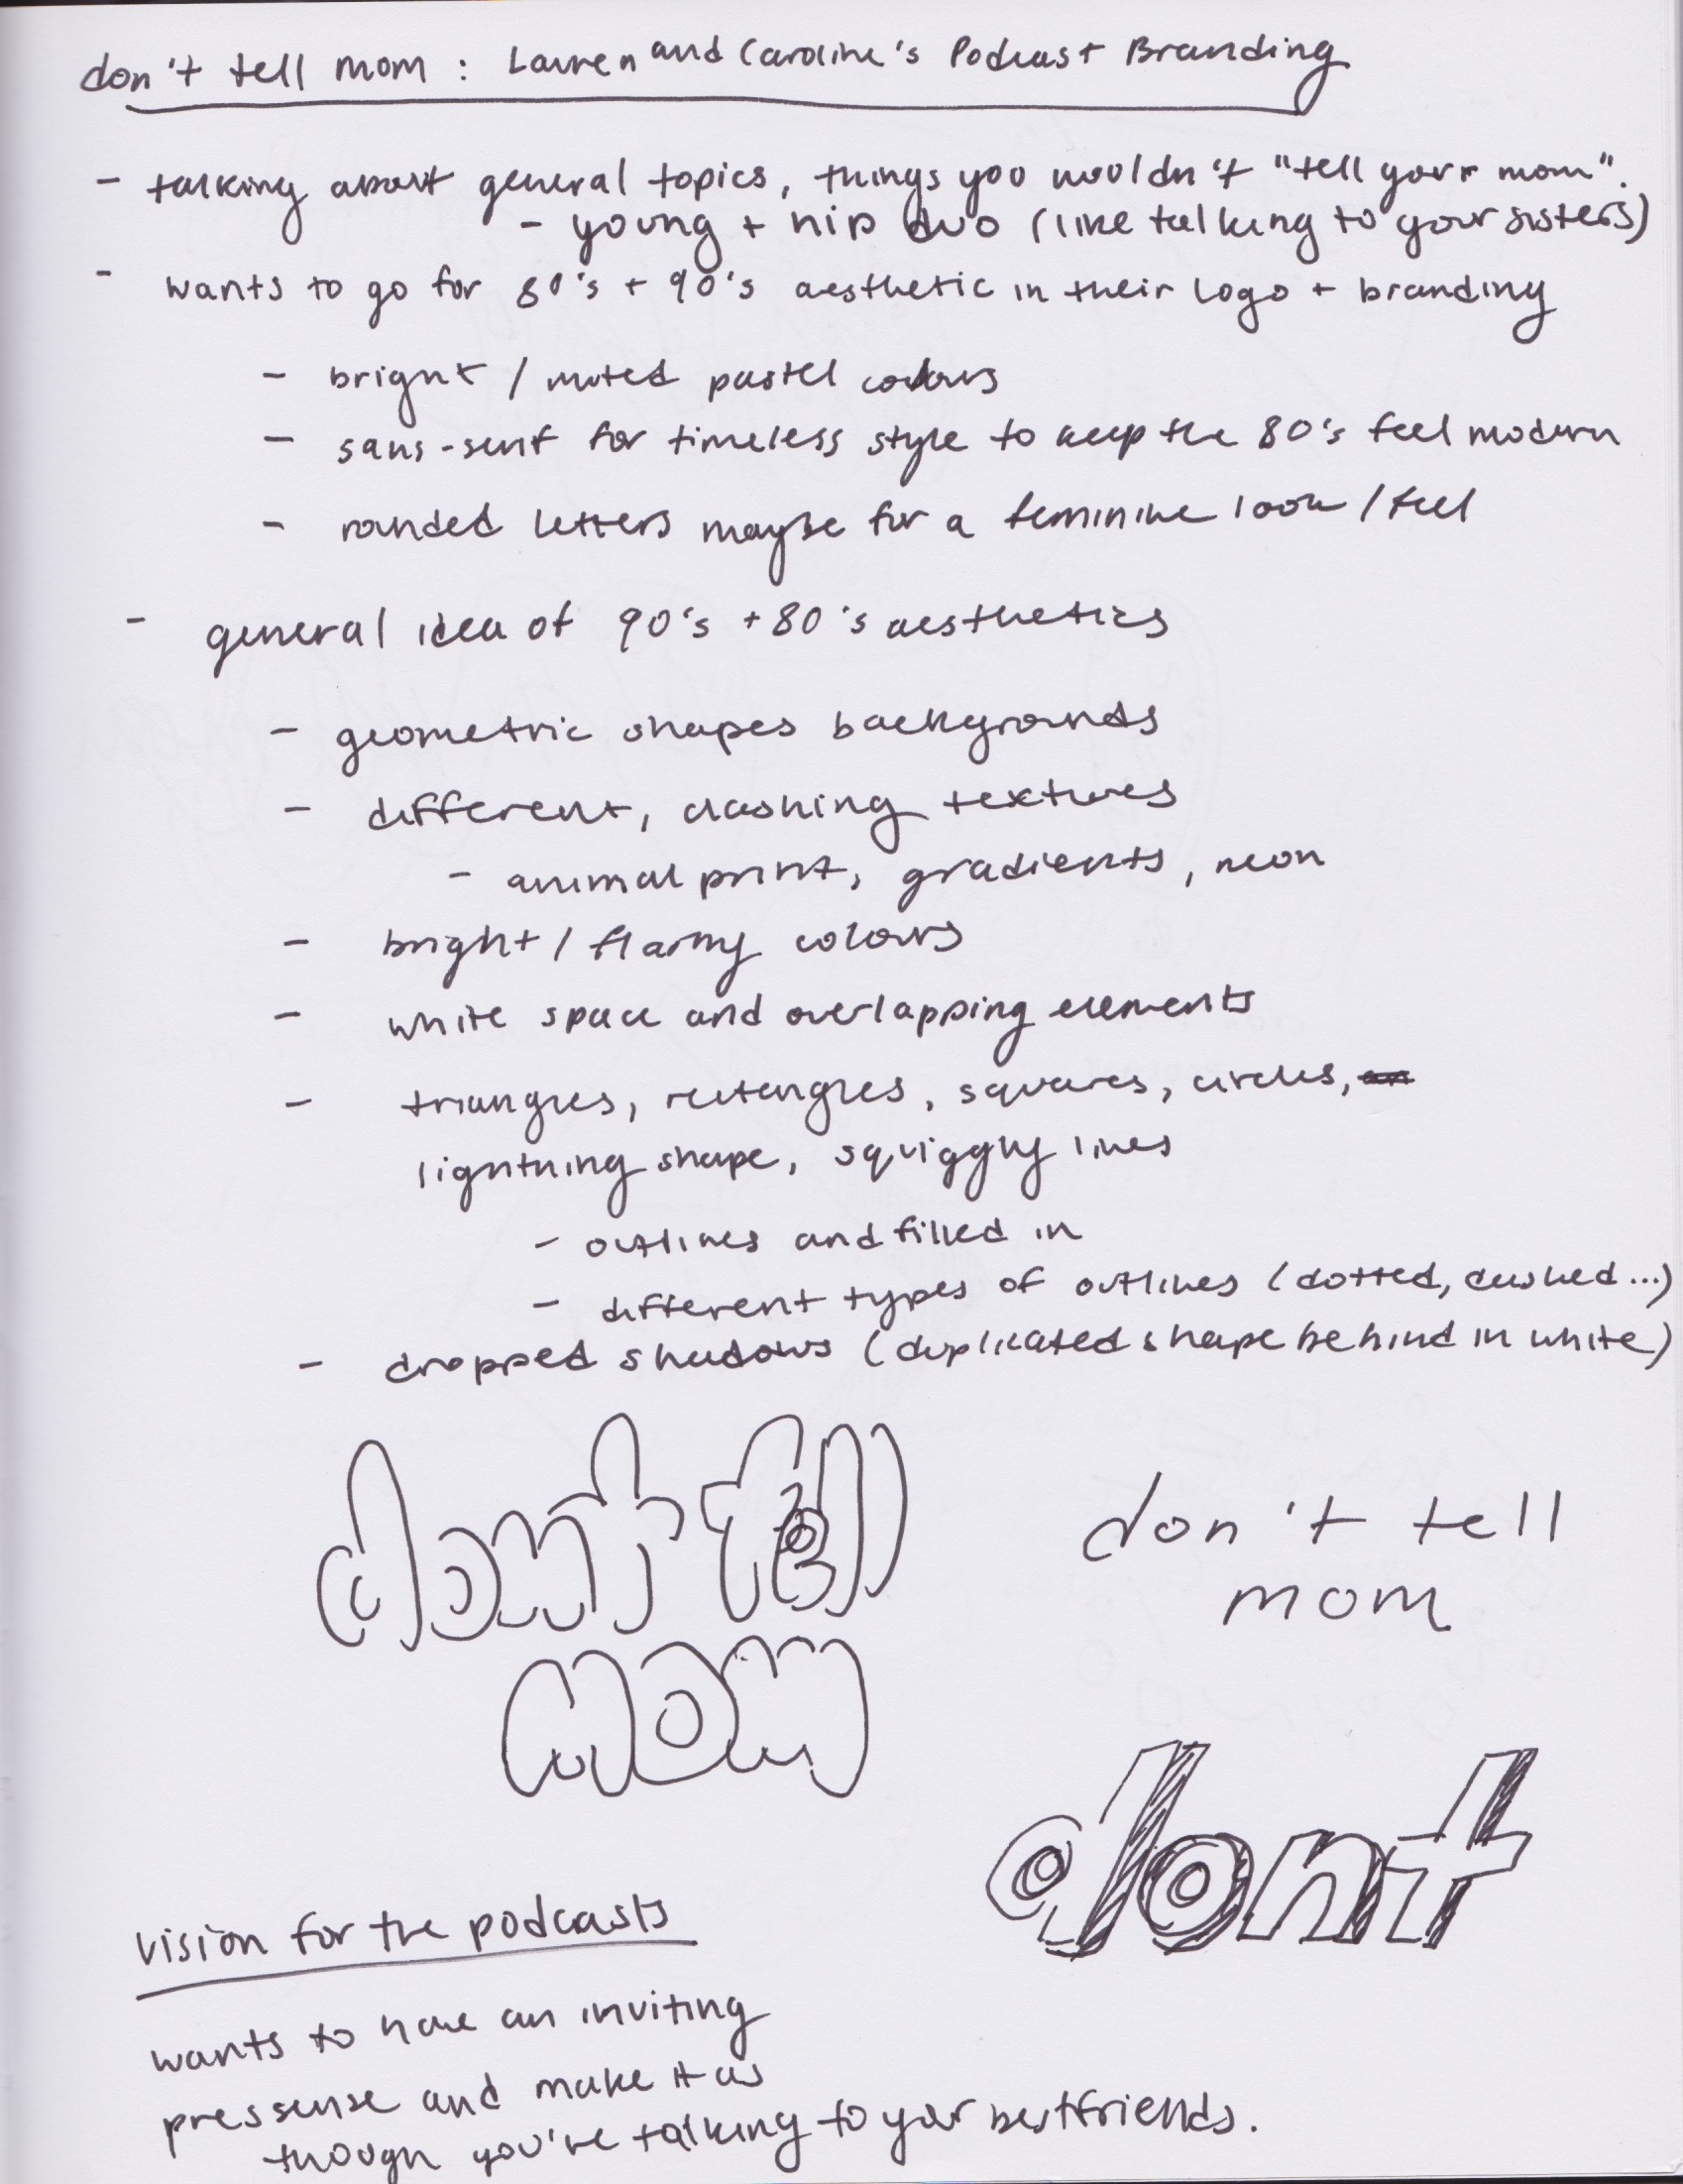 don't tell mom : Lauren and Caroline's Podcast Branding
- talking about general topics, things you wouldn't "tell your mom".
- young + hip duo (like talking to your sisters)
- wants to go for 80's + 90's aesthetic in their logo + branding
- bright / muted pastel colours
- sans-serif for timeless style to keep the 80's feel modern
- rounded letters maybe for a feminine look / feel
- general idea of 90's + 80's aesthetics
- geometric shapes backgrounds
- different, clashing textures
- animal print, gradients, neon
- bright / flashy colours
- white space and overlapping elements
- triangles, rectangles, squares, circles,
lightning shape, squiggly lines
- outlines and filled in
- different types of outlines (dotted, dashed...)
- dropped shadows (duplicated shape behind in white)
dont tell
mom
don't tell
mom
dont
vision for the podcasts
wants to have an inviting
pressense and make it as
though you're talking to your bestfriends.